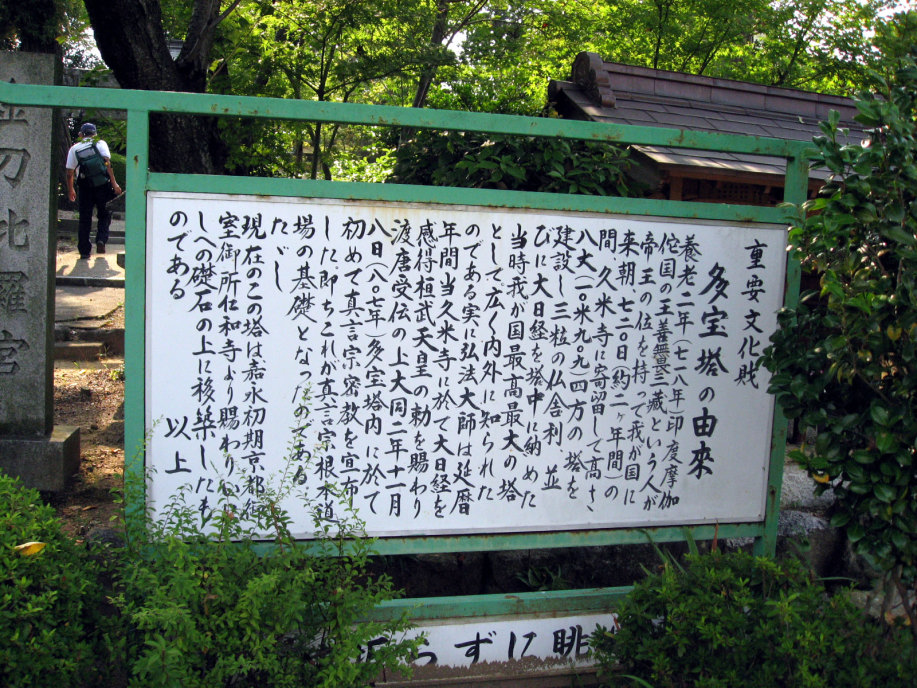 重要文化財
多宝塔の由来
養老二年(七一八年)印度摩伽
佗国の王善無畏三藏という人が
帝王の位を持って我が国に
来朝七二〇日(約二ヶ年間)
間久米寺に寄留して高さ
八大(一〇米九九)四方の塔を
建設し三粒の仏舎利並
びに大日経を塔中に納めた
当時我が国最高最大の塔
として広く内外に知られた
のである実に弘法大師は延暦
年間当久米寺に於て大日経を
感得桓武天皇の勅を賜わり
渡唐受伝の上大同二年十一月
八日(八〇七年)多宝塔内に於て
初めて真言宗密教を宣布
した即ちこれが真言宗根本道
場の基礎となったのである
現在のこの塔は嘉永初期京都御
室御所仁和寺より賜わりい
しへの礎石の上に移築したも
のである 以上
金刀比羅宮
眺にずら